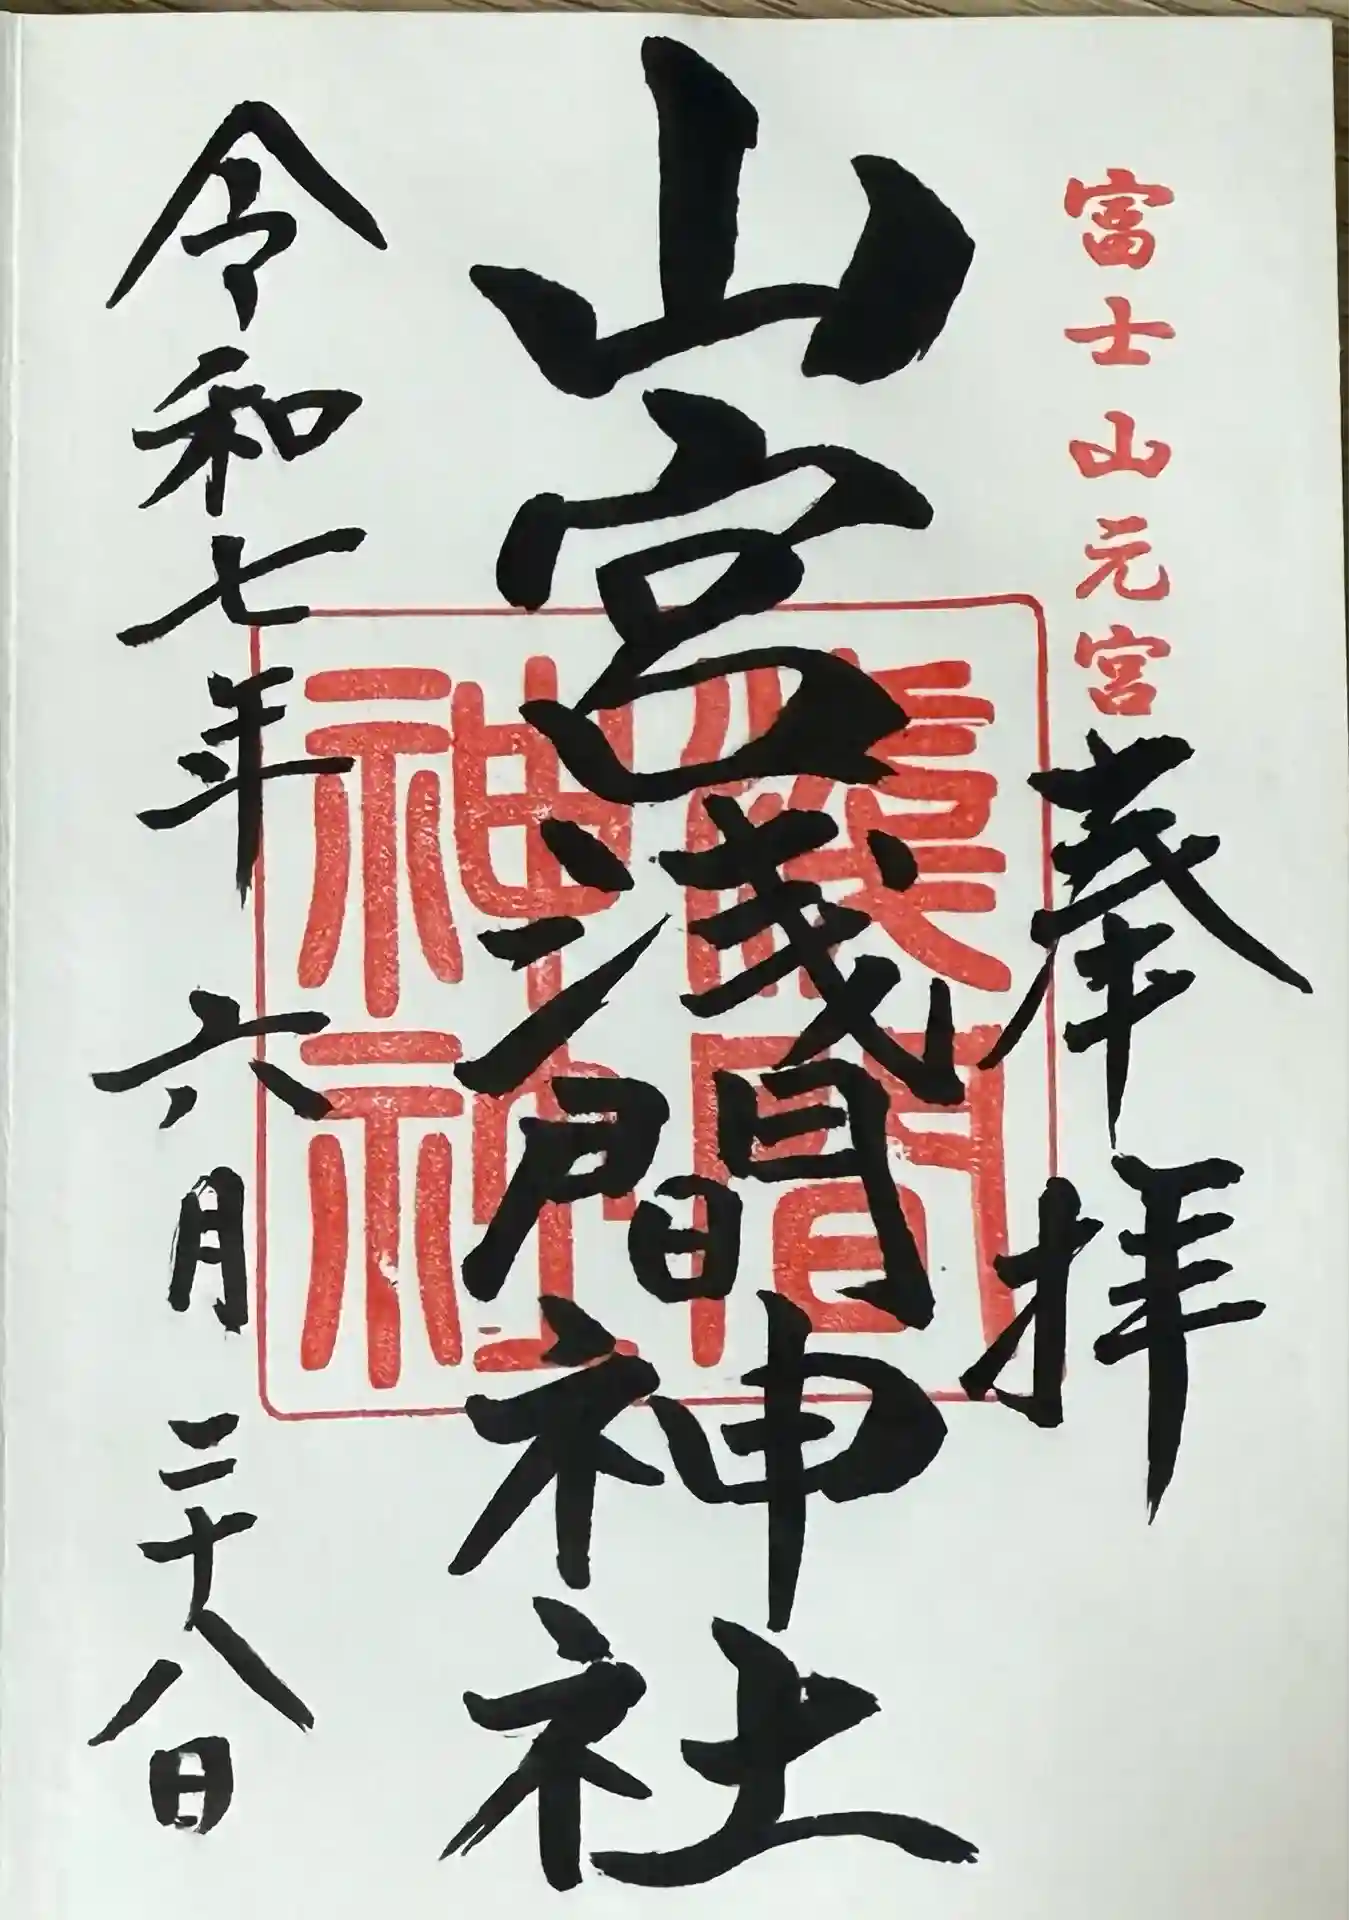 富士山元宮
奉拝
山宮浅間神社
浅間
神社
令和七年六月二十八日